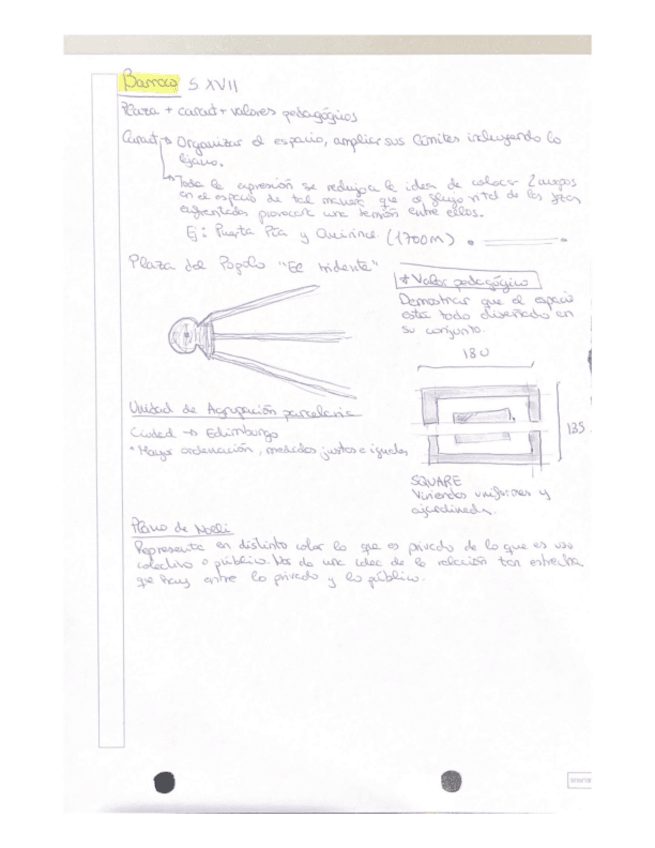 Barroco S XVII
Plaza + caract + valores pedagógicos
Caract → Organizar el espacio, ampliar sus límites incluyendo lo
lejano.
→ Toda la expresión se redujo a la idea de colocar 2 cuerpos
en el espacio de tal manera que el
enfrentados provocara una tensión entre ellos.
Ej: Puerta Pía y Quirinal (1700m)
Plaza del Popolo "El tridente"
* Valor pedagógico
Demostrar que el espacio
está todo diseñado en
su conjunto.
180
135
SQUARE
Viviendas uniformes y
ajardinada.
Unidad de Agrupación parcelaria
Ciudad → Edimburgo
• Mayor ordenación, medidas justas e iguales
Plano de Nolli
Representa en distinto color lo que es privado de lo que es uso
colectivo o público. Nos da una idea de la relación tan estrecha
que hay entre lo privado y lo público.